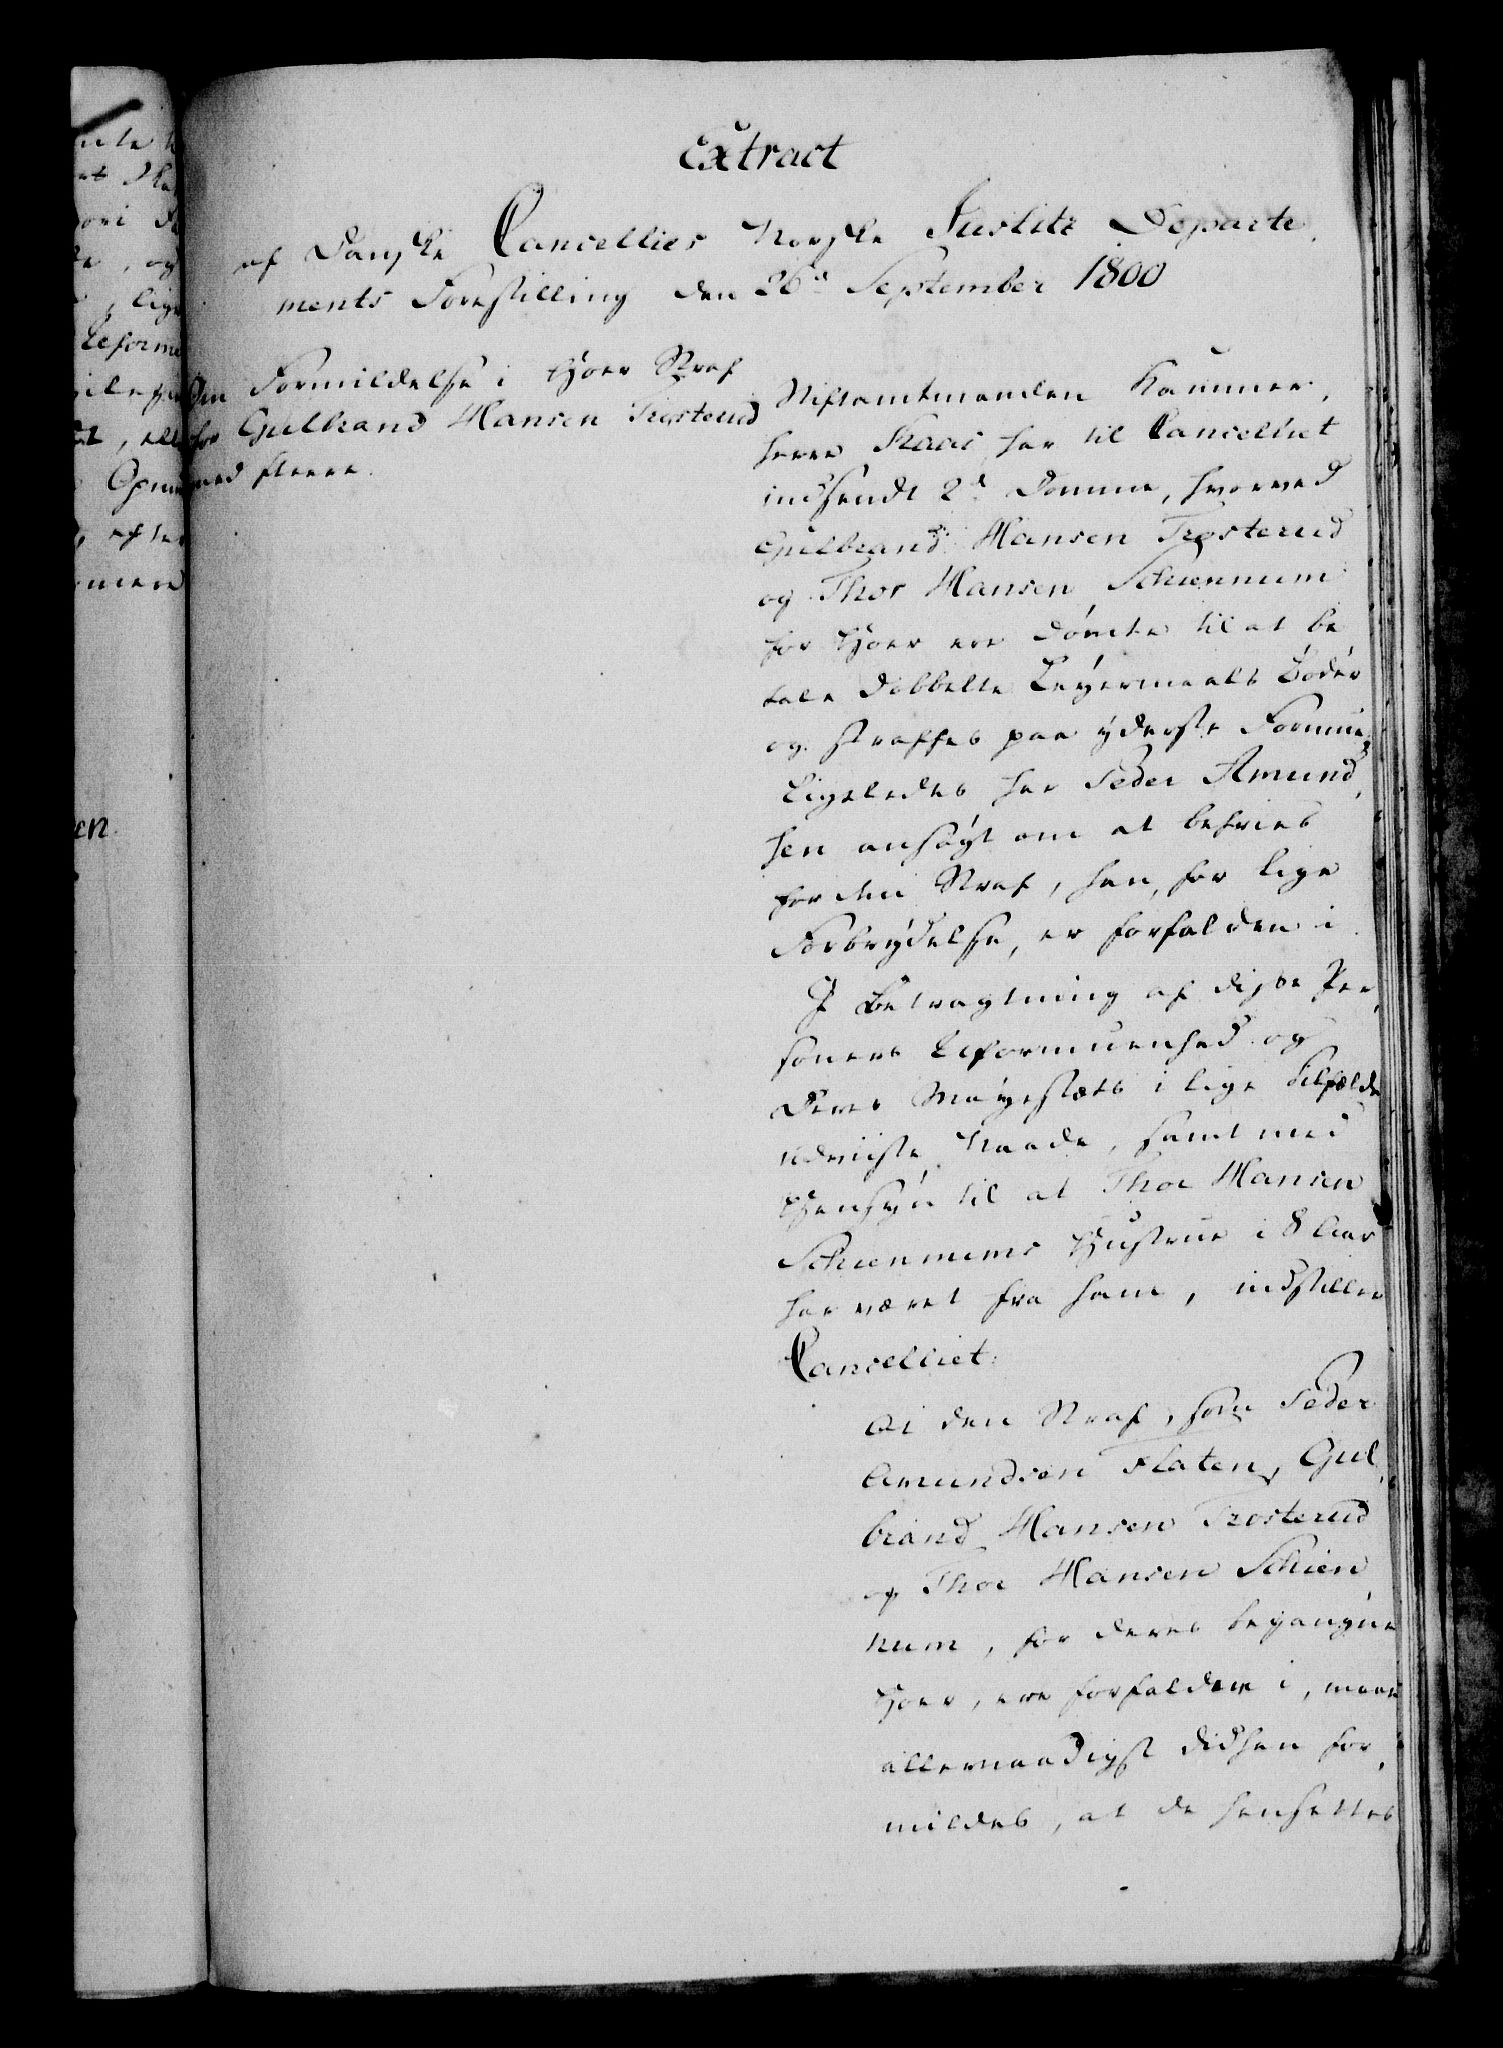 Extract
af Danske Cancellies Norske Justitz Departe
ments Forestilling den 26d September 1800
Om Formildelse i Hoer Straf
for Gulbrand Hansen Trosterud
med fleere.
Stiftamtmanden Kammer,
herre Kaas har til Cancelliet
indsendt 2de Domme, hvorved
Gulbrand Hansen Trosterud
og Thor Hansen Schiennum
for Hoer ere dømte til at be
tale dobbelte Leyermaals Bøder
og straffes paa yderste Formue,
Ligeledes har Peder Amund,
sen ansøgt om at befries
for den Straf, han, for lige
Forbrydelse, er forfalden i.
I Betragtning af disse Per,
soners Uformuenhed og
Deres Mayestæts i lige Tilfælde
udviiste Naade, samt med
Hensyn til at Thor Hansen
Schiennums Hustrue i 8 Aar
har været fra ham, indstiller
Cancelliet:
At den Straf, som Peder
Amundsen Flaten, Gul,
brand Hansen Trosterud
og Thor Hansen Schien,
num, for deres begangne
Hoer, ere forfaldne i, maae
allernaadigst didhen for,
mildes, at de hensættes